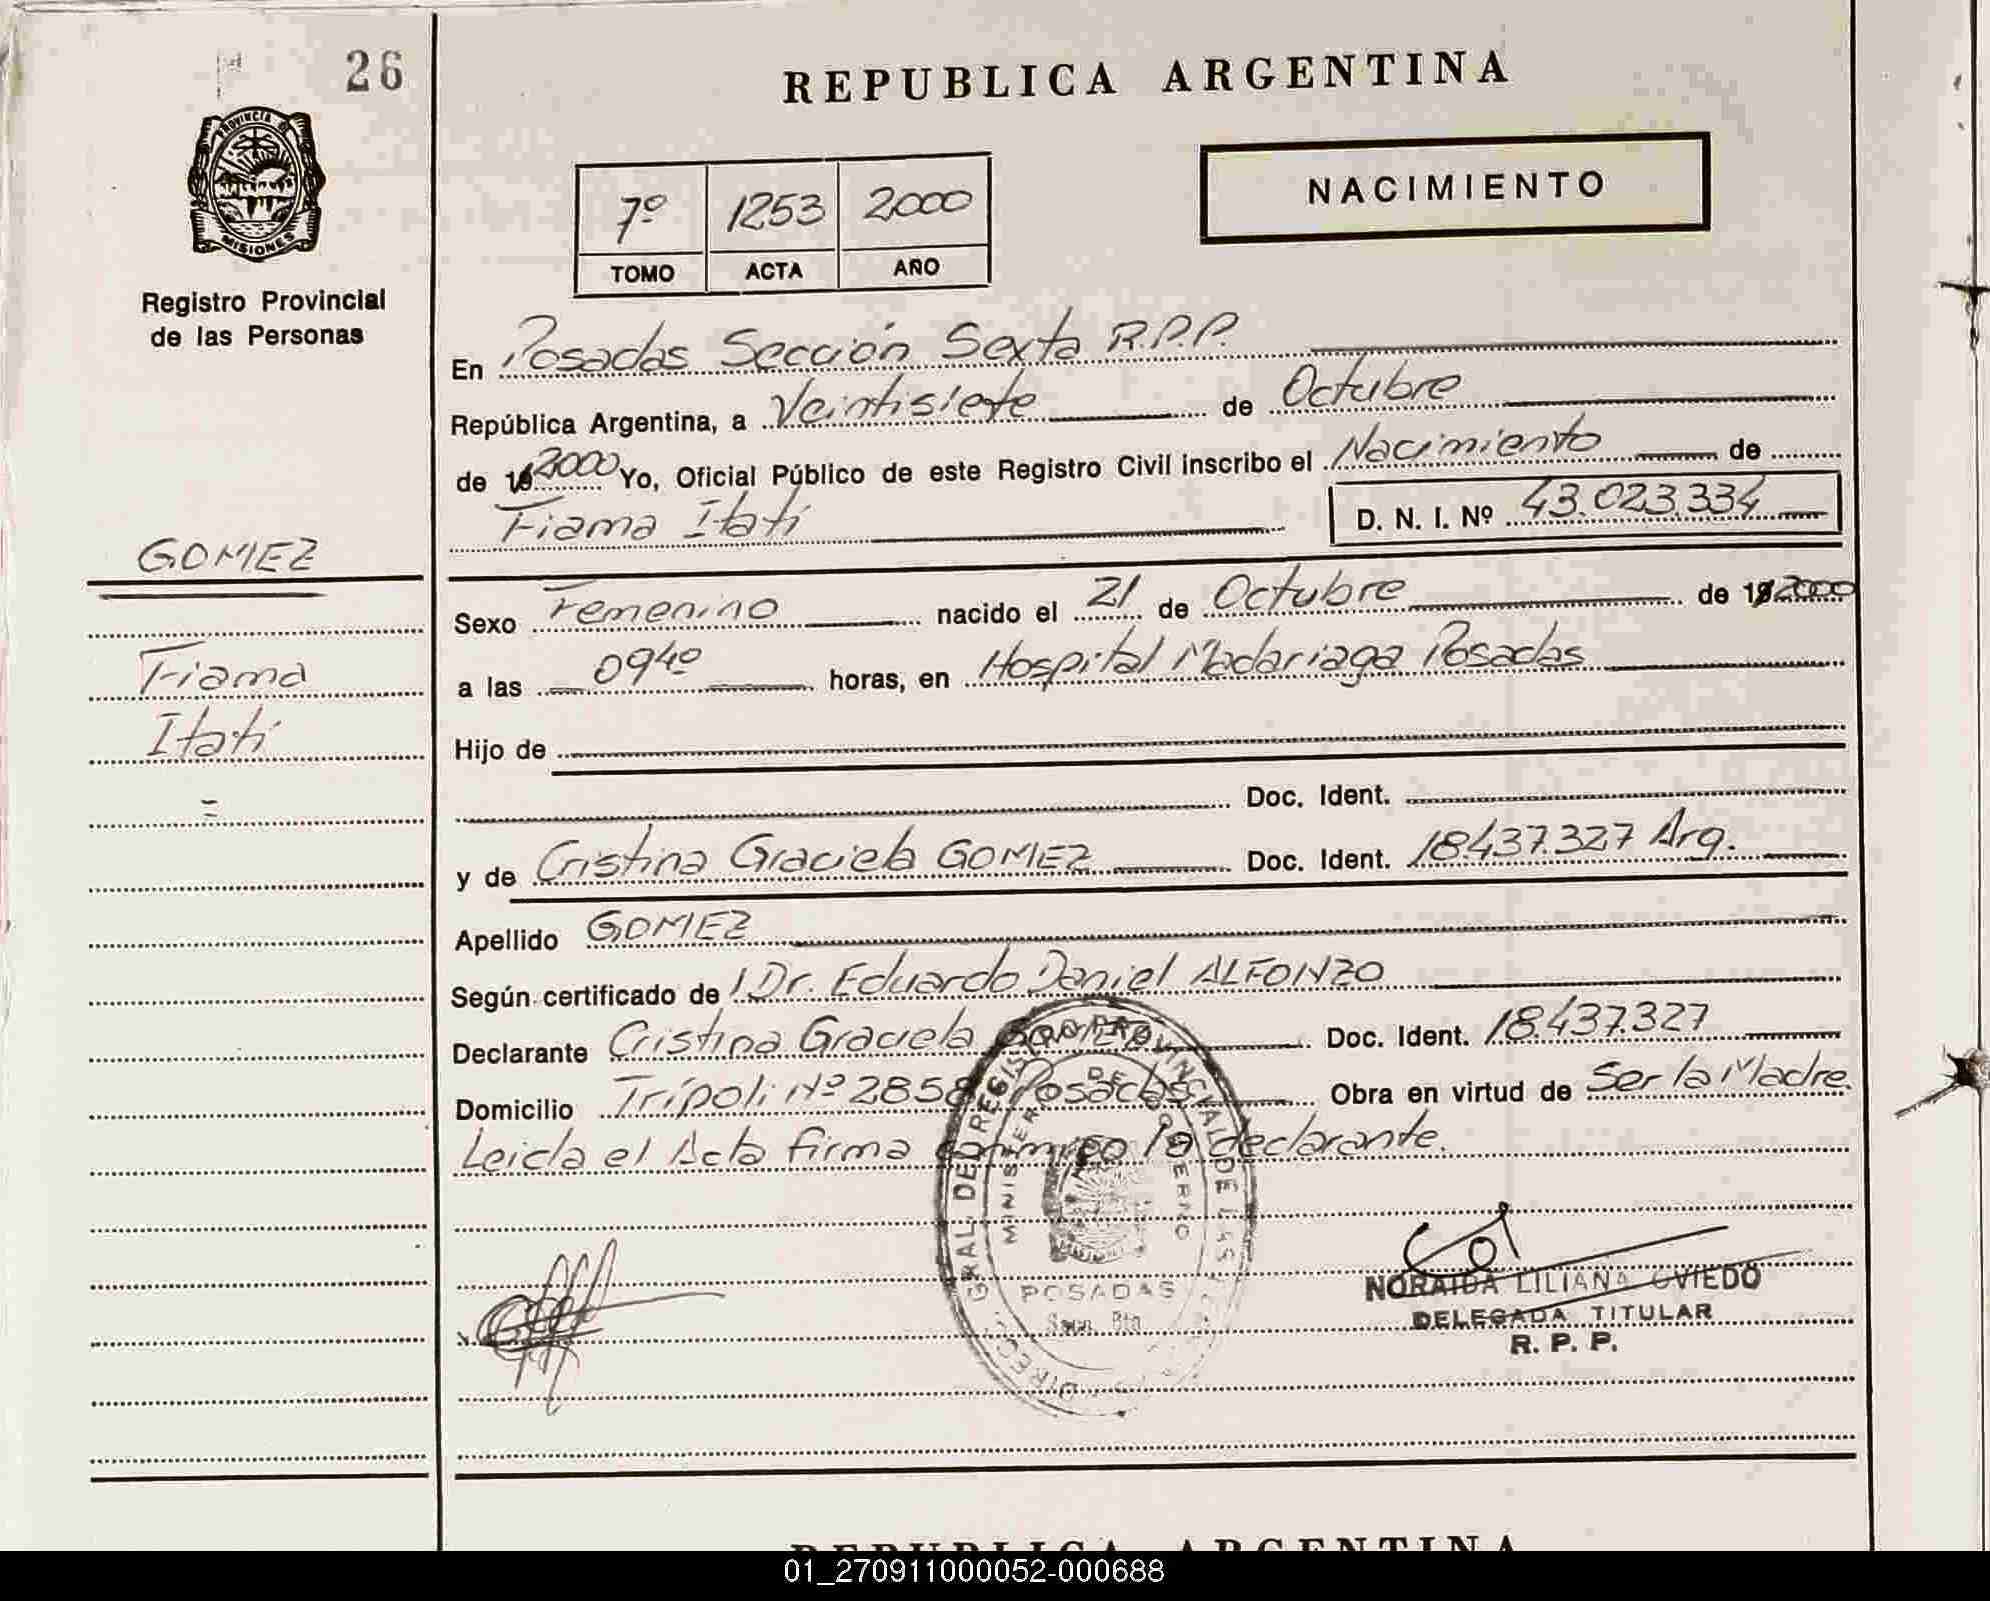 26
PROVINCIA DE
MISIONES
Registro Provincial
de las Personas
REPUBLICA ARGENTINA
NACIMIENTO
7º 1253 2000
TOMO ACTA AÑO
En Posadas Sección Sexta R.P.P.
República Argentina, a Veintisiete de Octubre
de 19 2000 Yo, Oficial Público de este Registro Civil inscribo el Nacimiento de
Fiama Itatí D. N. I. Nº 43.023.334
GOMEZ
Fiama
Itatí
=
Sexo Femenino nacido el 21 de Octubre de 19 2000
a las 0940 horas, en Hospital Madariaga Posadas
Hijo de
Doc. Ident.
y de Cristina Graciela GOMEZ Doc. Ident. 18.437.327 Arg.
Apellido GOMEZ
Según certificado de Dr. Eduardo Daniel ALFONZO
Declarante Cristina Graciela GOMEZ Doc. Ident. 18.437.327
Domicilio Trípoli Nº 2858 Posadas Obra en virtud de Ser la Madre.
Leida el Acta firma conmigo la declarante.
DIREC. GRAL. DEL REGISTRO PROVINCIAL DE LAS
MINISTERIO DE GOBIERNO
POSADAS
NORAIDA LILIANA OVIEDO
DELEGADA TITULAR
R. P. P.
REPUBLICA ARGENTINA
01_270911000052-000688